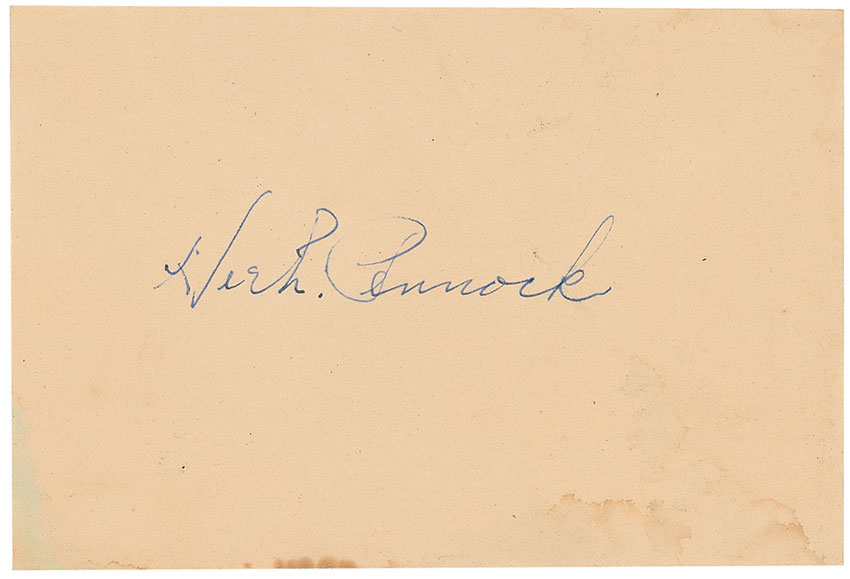 Herb. Pennock